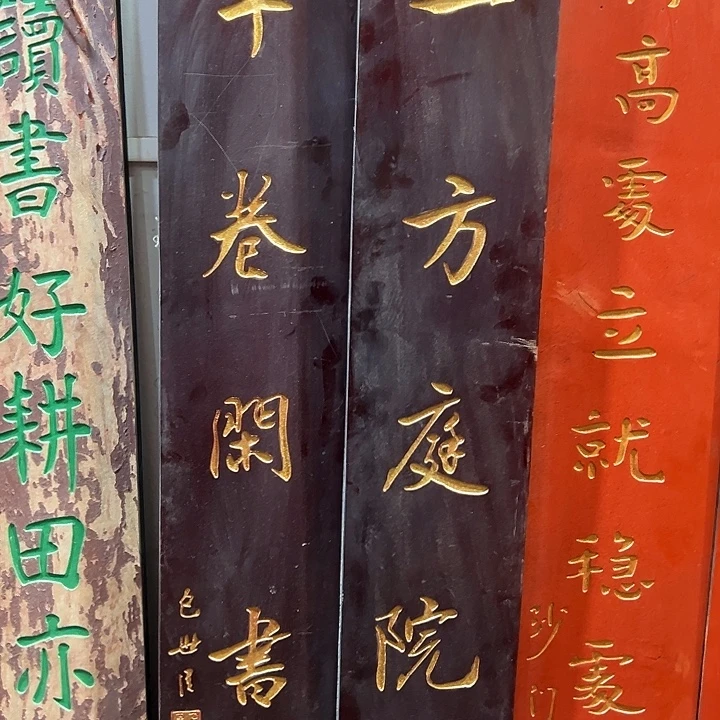 高處立就稳處
沙门
方庭院
卷閑書
包世臣
讀書好耕田亦